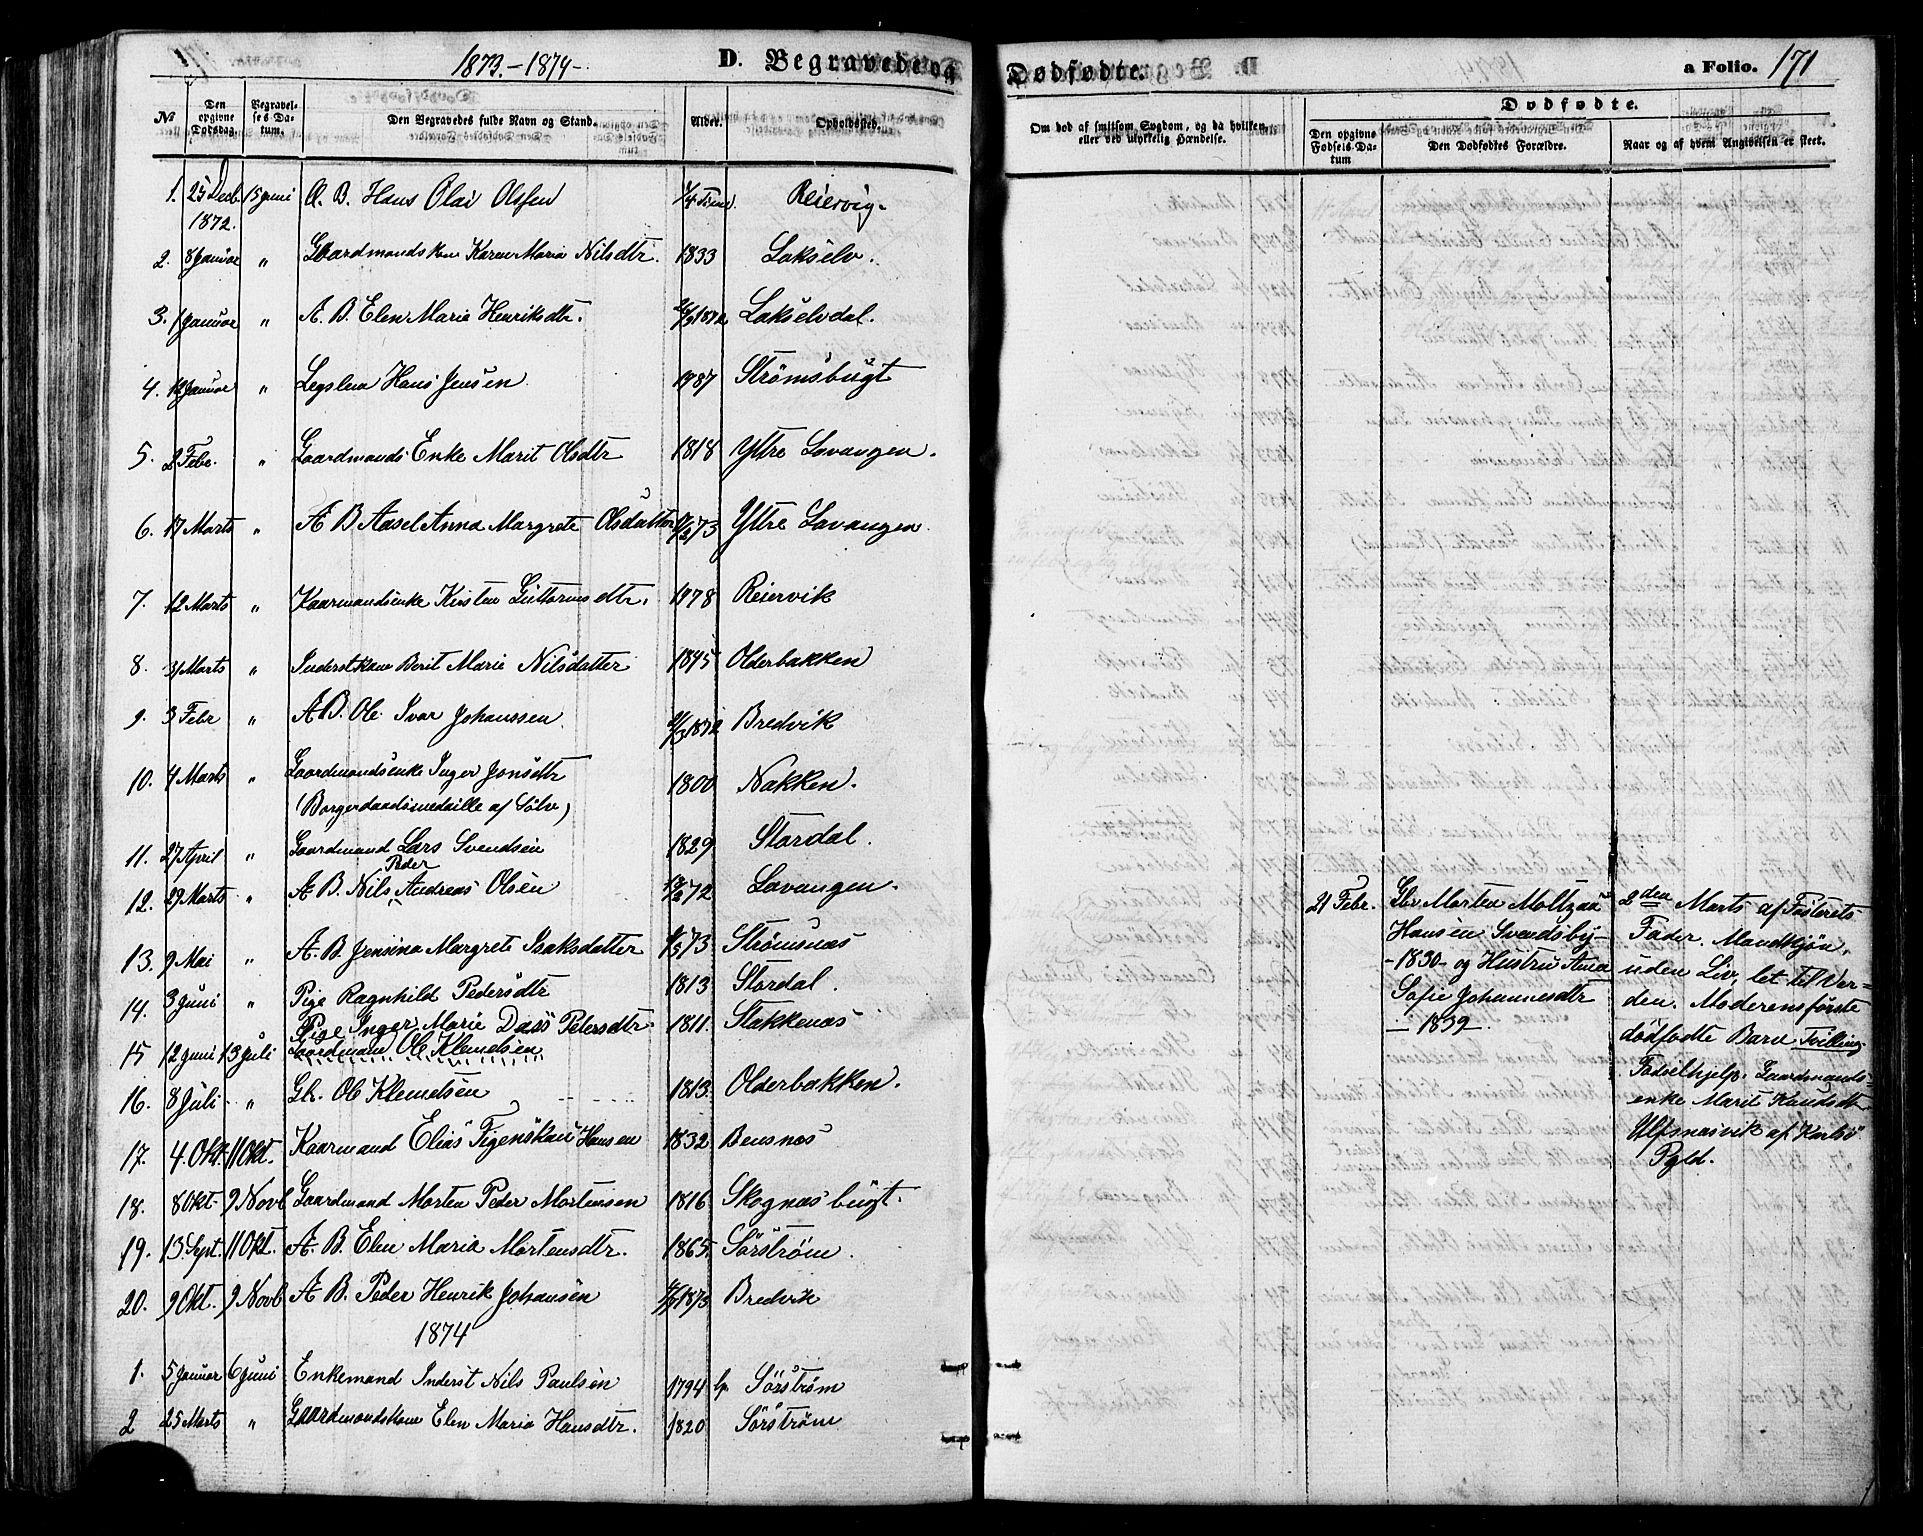 1873.-1874-
D. Begravede og
Dødfødte.
a Folio. 171
№ Den opgivne Dødsdag. Begravelses Datum. Den Begravedes fulde Navn og Stand. Alder. Opholdssted.
Om død af smitsom Sygdom, og da hvilken, eller ved ulykkelig Hændelse.
Dødfødte.
Den opgivne Fødsels Datum
Den Dødfødtes Forældre.
Naar og af hvem Angivelsen er skeet.
1. 25 Decb. 15 Juni A. B. Hans Olai Olsen Reiervig.
1872.
2. 8 Januar " Gaardmandskone Karen Maria Nilsdtr. 1833 Lakselv.
3. 1 Januar " A. B. Elen Maria Henriksdtr. Lakselvdal.
4. 12 Januar " Legslem Hans Jensen 1787 Strømsbugt
5. 2 Febr. " Gaardmands Enke Marit Olsdtr 1818 Yttre Lavangen.
6. 17 Marts " A B Aasel Anna Margrete Olsdatter 17/2 73 Yttre Lavangen.
7. 12 Marts " Kaarmandsenke Kirsten Guttormsdtr. 1778 Reiervik
8. 31 Marts " Inderstkone Berit Marie Nilsdatter 1845 Olderbakken
9. 3 Febr " A B. Ole Ivar Johanssen 1872 Bredvik
10. 4 Marts " Gaardmandsenke Inger Jonsdtr 1800 Nakken.
(Borgerdaadsmedaille af Sølv)
11. 27 April " Gaardmand Lars Svendsen 1829 Stordal.
Peder
12. 29 Marts " A. B. Nils Andreas Olsen 72 Lavangen.
13. 9 Mai " A. B. Jensina Margrete Isaksdatter 73 Strømsnæs
14. 3 Juni " Pige Ragnhild Pedersdtr 1813 Stordal.
Pige Inger Marie Dass Petersdtr 1811. Stakkenæs
15 12 Juni 13 Juli Gaardmand Ole Klemetsen
16. 8 Juli " Gbr. Ole Klemetsen 1813. Olderbakken.
17. 4. Okt. 11 Okt. Kaarmand Elias Figenskau Hansen 1832 Bensnæs
18. 8 Okt. 9 Novb Gaardmand Morten Peder Mortensen 1816 Skognæsbugt.
19. 13. Sept. 11 Okt. A. B. Elen Maria Mortensdtr. 1865. Sørstrøm.
20. 9 Okt. 9 Novb A B. Peder Henrik Johansen 1873 Bredvik
1874
1. 5 Januar 6 Juni Enkemand Inderst Nils Paulsen 1794 Sørstrøm
2 25 Marts " Gaardmandskone Elen Maria Hansdtr. 1820 Sørstrøm
21 Febr. Gbr Morten Moltzau
Hansen Svendsby
-1830- og Hustru Anna
Sofie Johannesdtr
- 1839.
2den Marts af Fosterets
Fader. Mandkjøn,
uden Liv, let til Ver-
den. Moderens første
dødfødte Barn Tvilling
Fødselhjelp. Gaardmands-
enke Marit Knudsdtr
Ulfsnæsvik af "Karlsø"
Pgld.